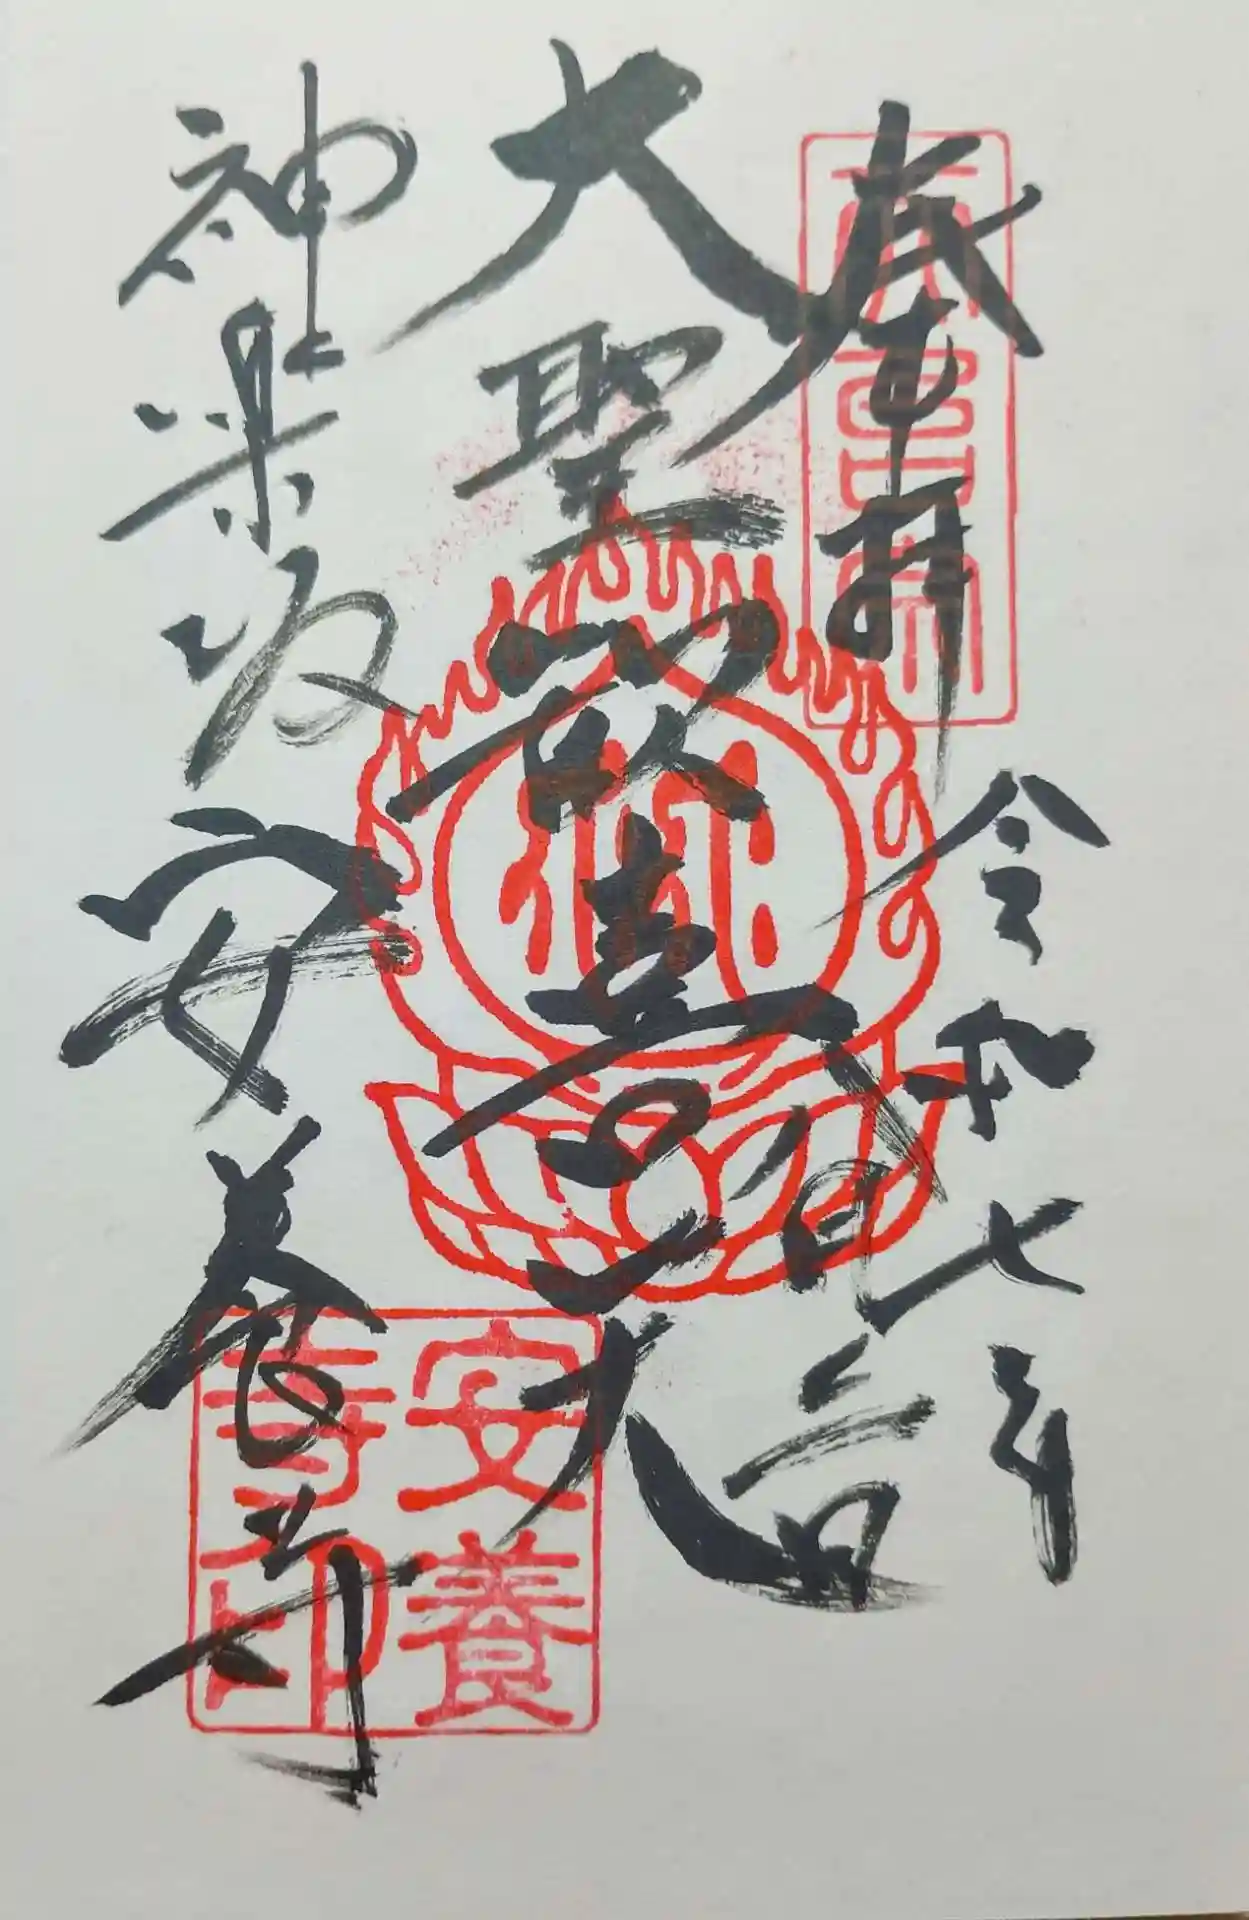 奉拝
令和七年
八月
大聖歓喜天
神楽坂
安養寺
安養
寺印